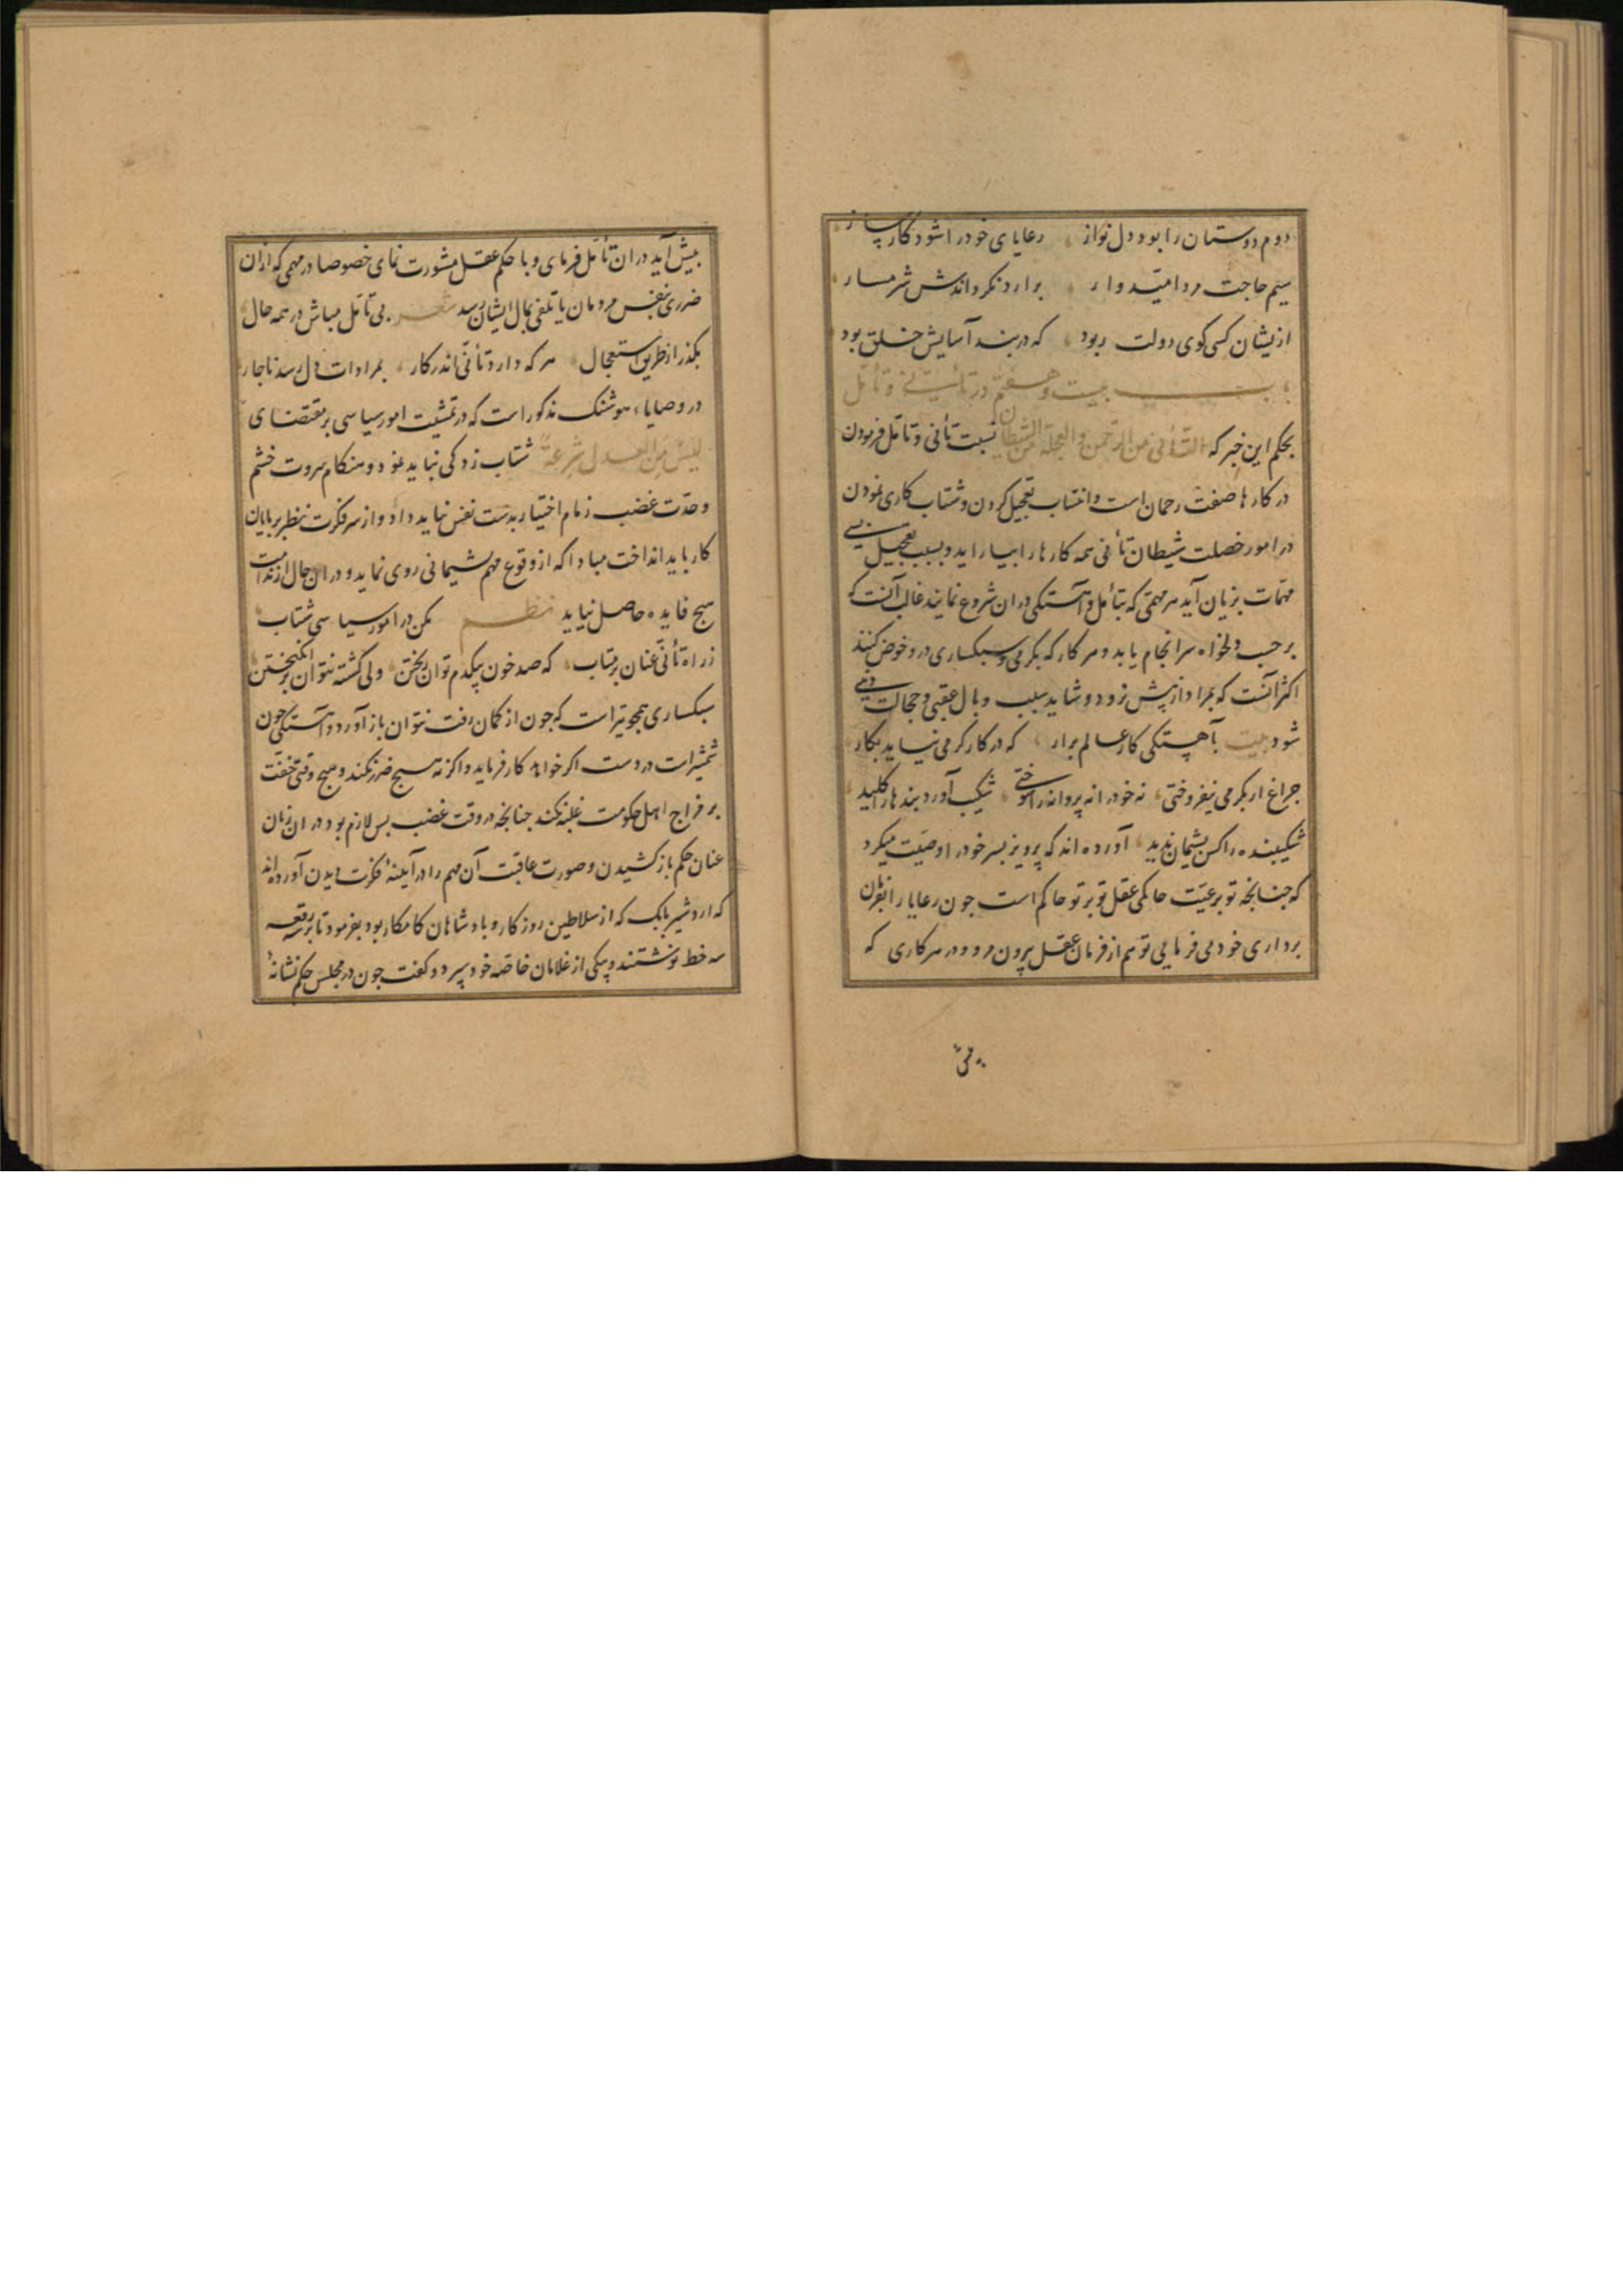 دوم دوستان را بود دل نواز رعایای خود را شود کارساز
سیم حاجت مرد امیدوار برارد نکرداندش شرمسار
ازیشان کسی کوی دولت ربود که در بند آسایش خلق بود
باب بیست و هفتم در تأنی و تأمل
بحکم این خبر که التأنی من الرحمن والعجلة من الشیطان نسبت تأنی و تأمل فرمودن
در کارها صفت رحمان است و انتساب تعجیل کردن و شتاب کاری نمودن
در امور خصلت شیطان تأنی همه کارها را بیاراید و بسبب تعجیل بسی
مهمات بزیان آید هر مهمی که بتأمل و آهستکی دران شروع نمایند غالب آنست که
برحسب دلخواه سرانجام یابد و هر کار که بکرمی و سبکساری درو خوض کنند
اکثر آنست که بمراد از پیش نرود و شاید سبب وبال عقبی و خجالت دنیی
شود بیت بآهستکی کار عالم برار که در کار کرمی نیاید بکار
چراغ ار بکرمی نیفروختی نه خود را نه پروانه را سوختی شکیب آورد بندها را کلید
شکیبنده را کس پشیمان ندید آورده اند که پرویز پسر خود را وصیت میکرد
که جنانجه تو بر رعیت حاکمی عقل تو بر تو حاکم است جون رعایا را بفرمان
برداری خود می فرمایی تو هم از فرمان عقل بیرون مرو و در هر کاری که
پیش
پیش آید دران تأمل فرمای و با حکم عقل مشورت نمای خصوصا در مهمی که ازان
ضرری بنفس مردمان یا تلفی بمال ایشان رسد شعر بی تأمل مباش در همه حال
بکذر از طریق استعجال هر که دارد تأنی اندر کار بمرادات دل رسد ناجار
در وصایاء هوشنک مذکور است که در تمشیت امور سیاسی بر مقتضای
لیس من العدل سرعة شتاب زدکی نباید نمود و هنکام سروت خشم
و حدت غضب زمام اختیار بدست نفس نباید داد و از سر فکرت نظر بر پایان
کار باید انداخت مبادا که از وقوع مهم پشیمانی روی نماید و دران حال از ندامت
هیچ فایده حاصل نیاید نظم مکن در امور سیاسی شتاب
ز راه تأنی عنان برمتاب که صد خون بیکدم توان ریختن ولی کشته نتوان برانکیختن
سبکساری همجو تیر است که جون از کمان رفت نتوان باز آورد و آهستکی جون
شمشیرست در دست اکر خواهد کار فرماید و اکر نه هیچ ضرر نکند و هیچ وقتی خفت
بر مزاج اهل حکومت غلبه نکند جنانجه در وقت غضب پس لازم بود دران زمان
عنان حکم باز کشیدن و صورت عاقبت آن مهم را در آیینهٔ فکرت دیدن آورده اند
که اردشیر بابک که از سلاطین روزکار و پادشاهان کامکار بود بفرمود تا بر سه رقعه
سه خط نوشتند و بیکی از غلامان خاصه خود سپرد و کفت جون در مجلس حکم نشانهٔ